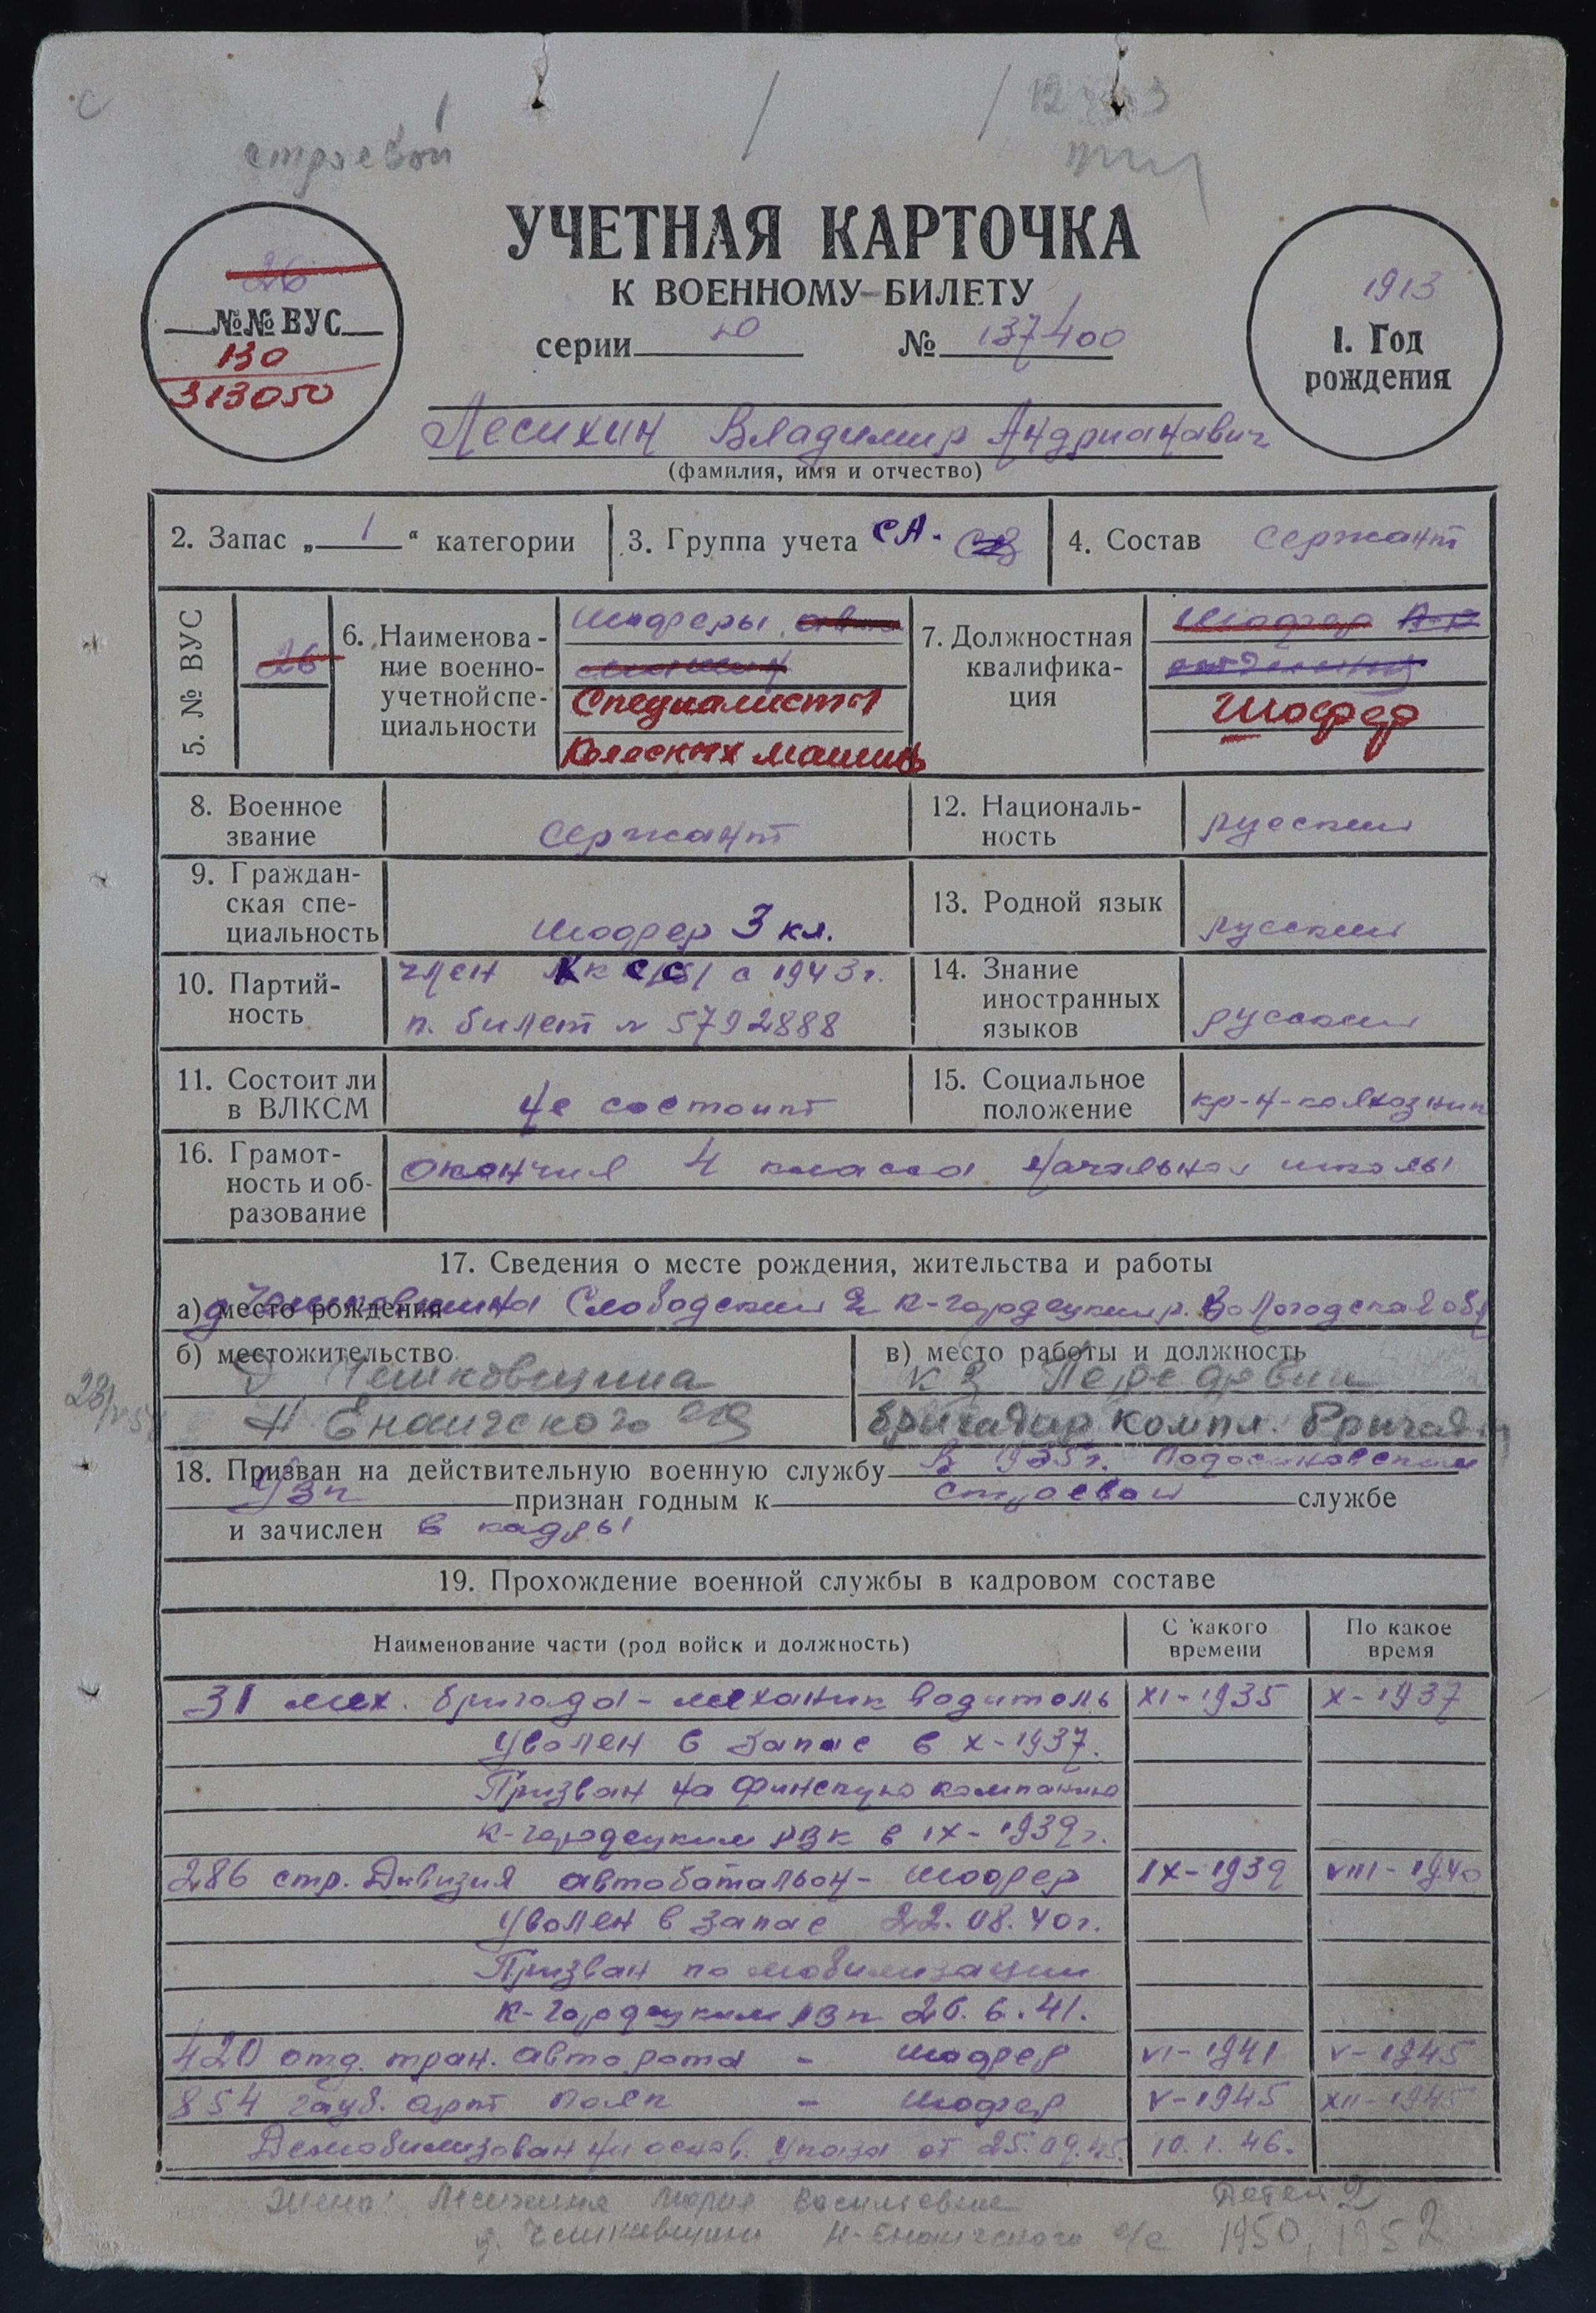 строевой
УЧЕТНАЯ КАРТОЧКА
К ВОЕННОМУ БИЛЕТУ
серии № 137400
26
№№ ВУС
130
313050
1913
1. Год
рождения
Лесихин Владимир Андрианавич
(фамилия, имя и отчество)
2. Запас „1“ категории
3. Группа учета СА.
4. Состав сержант
5. № ВУС
26
6. Наименова-
ние военно-
учетной спе-
циальности
шоферы авто
машин
Специалисты
колесных машин
7. Должностная
квалифика-
ция
шофер
Шофер
8. Военное
звание
сержант
12. Националь-
ность
русский
9. Граждан-
ская спе-
циальность
шофер 3 кл.
13. Родной язык
русский
10. Партий-
ность
член с 1943 г.
п. билет № 5792888
14. Знание
иностранных
языков
русский
11. Состоит ли
в ВЛКСМ
не состоит
15. Социальное
положение
кр-н-колхозник
16. Грамот-
ность и об-
разование
окончил 4 класса начальной школы
17. Сведения о месте рождения, жительства и работы
а) место рождения
д Чешковщина Слободский К-городецкий р. Вологодская обл
б) местожительство
д Чешковщина
Н Енангского
в) место работы и должность
к з Передовик
бригадир компл. бригады
18. Призван на действительную военную службу в 1935 г. Подосиновским
РВК признан годным к строевой службе
и зачислен в кадры
19. Прохождение военной службы в кадровом составе
Наименование части (род войск и должность)
С какого
времени
По какое
время
31 мех. бригада - механик водитель XI-1935 X-1937
Уволен в запас в X-1937.
Призван на финскую компанию
К-городецким РВК в IX-1939 г.
286 стр. Дивизия автобатальон - шофер IX-1939 VIII-1940
Уволен в запас 22.08.40 г.
Призван по мобилизации
К-Городецким РВК 26.6.41.
420 отд. тран. авто рота - шофер VI-1941 V-1945
854 гауб. арт полк - шофер V-1945 XII-1945
Демобилизован на основ. указа от 25.09.45. 10.1.46.
Жена: Лесихина Мария Васильевна
Детей 2
д. Чешковщина Н-Енангского с/с 1950, 1952